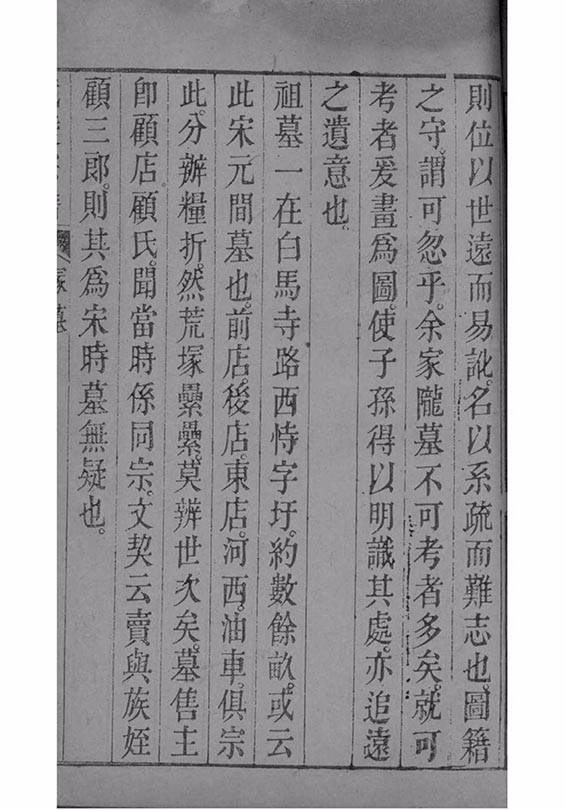 則位以世遠而易訛。名以系疏而難志也。圖籍
之守。謂可忽乎。余家隴墓不可考者多矣。就可
考者爰畫爲圖。使子孫得以明識其處。亦追遠
之遺意也。
祖墓一在白馬寺路西恃字圩。約數餘畝。或云
此宋元間墓也。前店。後店。東店。河西。油車。俱宗
此。分辦糧折。然荒塚纍纍。莫辨世次矣。墓售主
卽顧店顧氏。聞當時係同宗。文契云賣與族姪
顧三郎。則其爲宋時墓無疑也。
塚墓